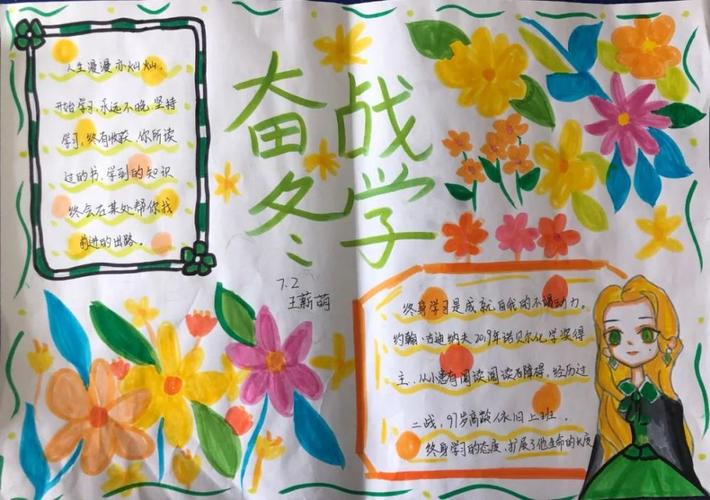 奋战
冬学
人生漫漫亦灿灿。
开始学习,永远不晚,坚持
学习,终有收获,你所读
过的书,学到的知识
终会在某处帮你找
前进的出路。
7.2
王薪萌
终身学习是成就自我的不竭动力。
约翰·古迪纳夫2019年诺贝尔化学奖得
主,从小患有阅读阅读障碍,经历过
二战,97岁高龄依旧上班。
终身学习的态度,扩展了他生命的长度